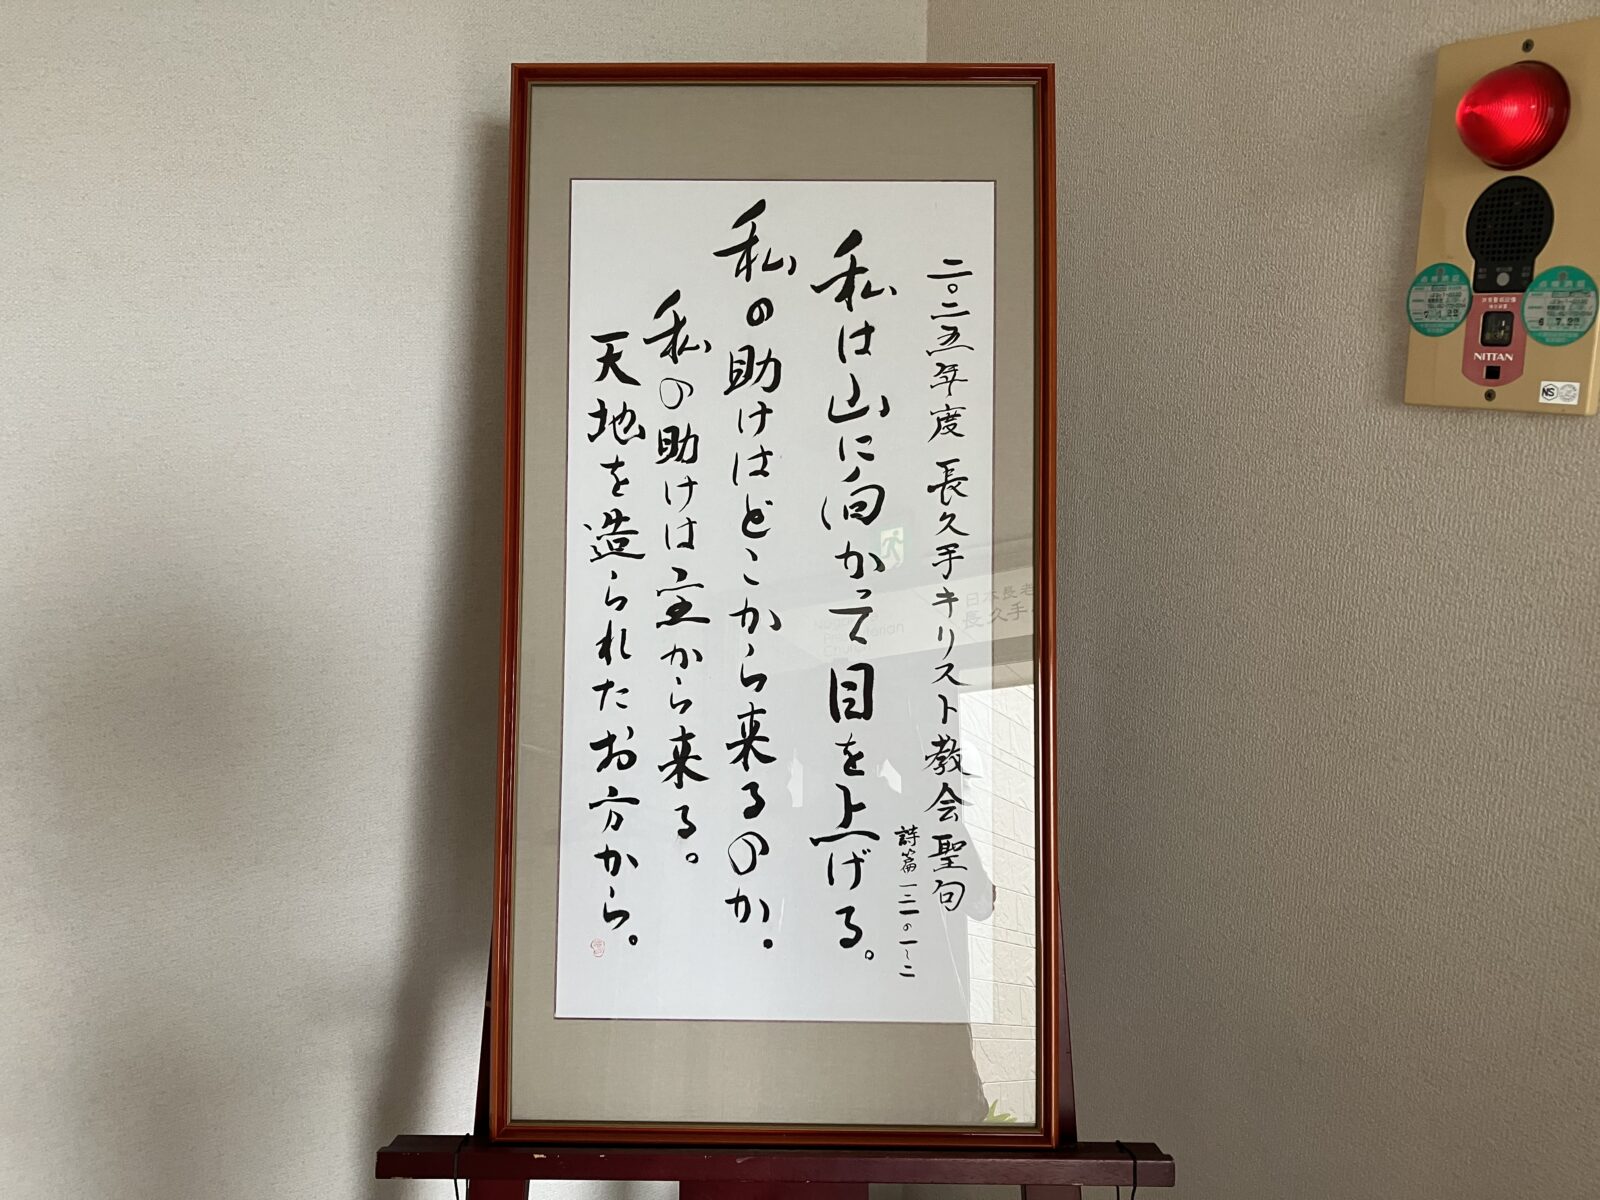 二〇二五年度 長久手キリスト教会聖句
詩篇一二一の一～二
私は山に向かって目を上げる。
私の助けはどこから来るのか。
私の助けは主から来る。
天地を造られたお方から。
日本長老
長久手
NITTAN
NS